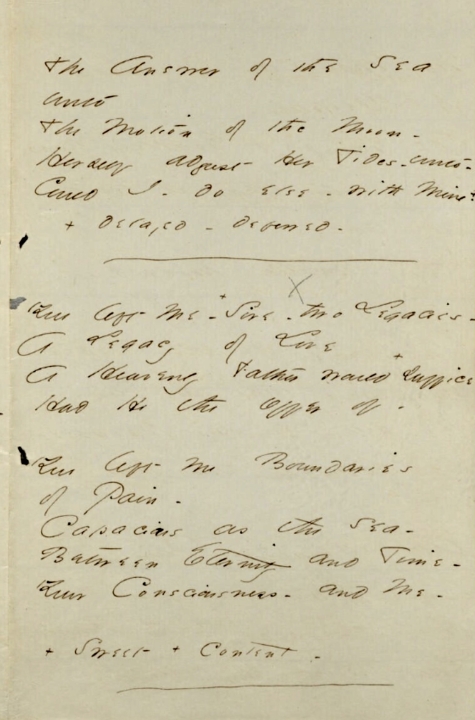 The Answer of the Sea
unto
The Motion of the Moon -
Herself adjust Her Tides - unto -
Could I - do else - with Mine?
+ delayed - deferred -
X
You left me - + Sire - two Legacies -
A Legacy of Love
A Heavenly Father would + suffice
Had He the offer of -
You left me Boundaries
of Pain -
Capacious as the Sea -
Between Eternity and Time -
Your Consciousness - and Me -
+ Sweet + Content -